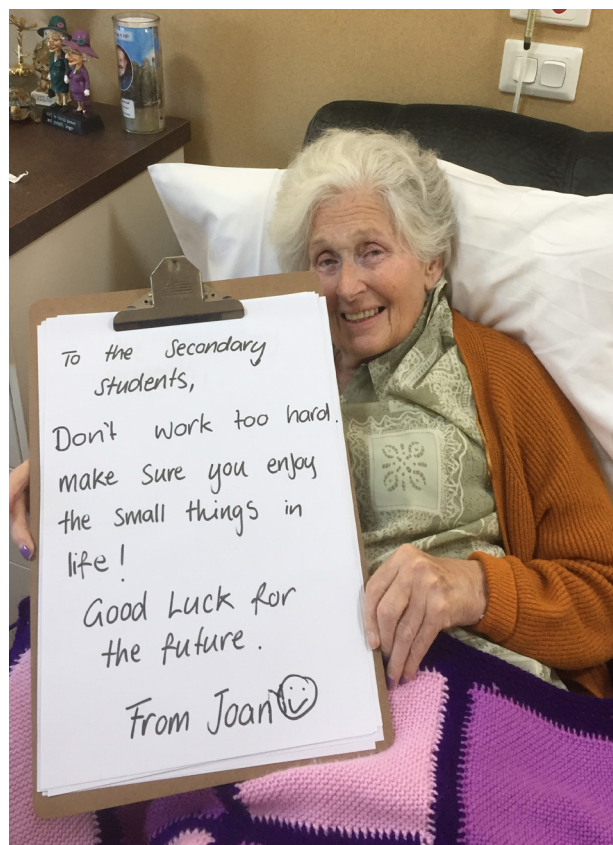 To the Secondary
students,
Don't work too hard.
make sure you enjoy
the small things in
life!
Good Luck for
the future.
From Joan